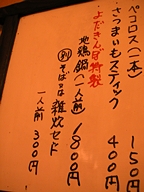 ペコロス(一本) 150
さつまいもスティック 400
よだきんぼ特製
地鶏鍋(一人前) 1800円
別そば又は雑炊セット
一人前 300円